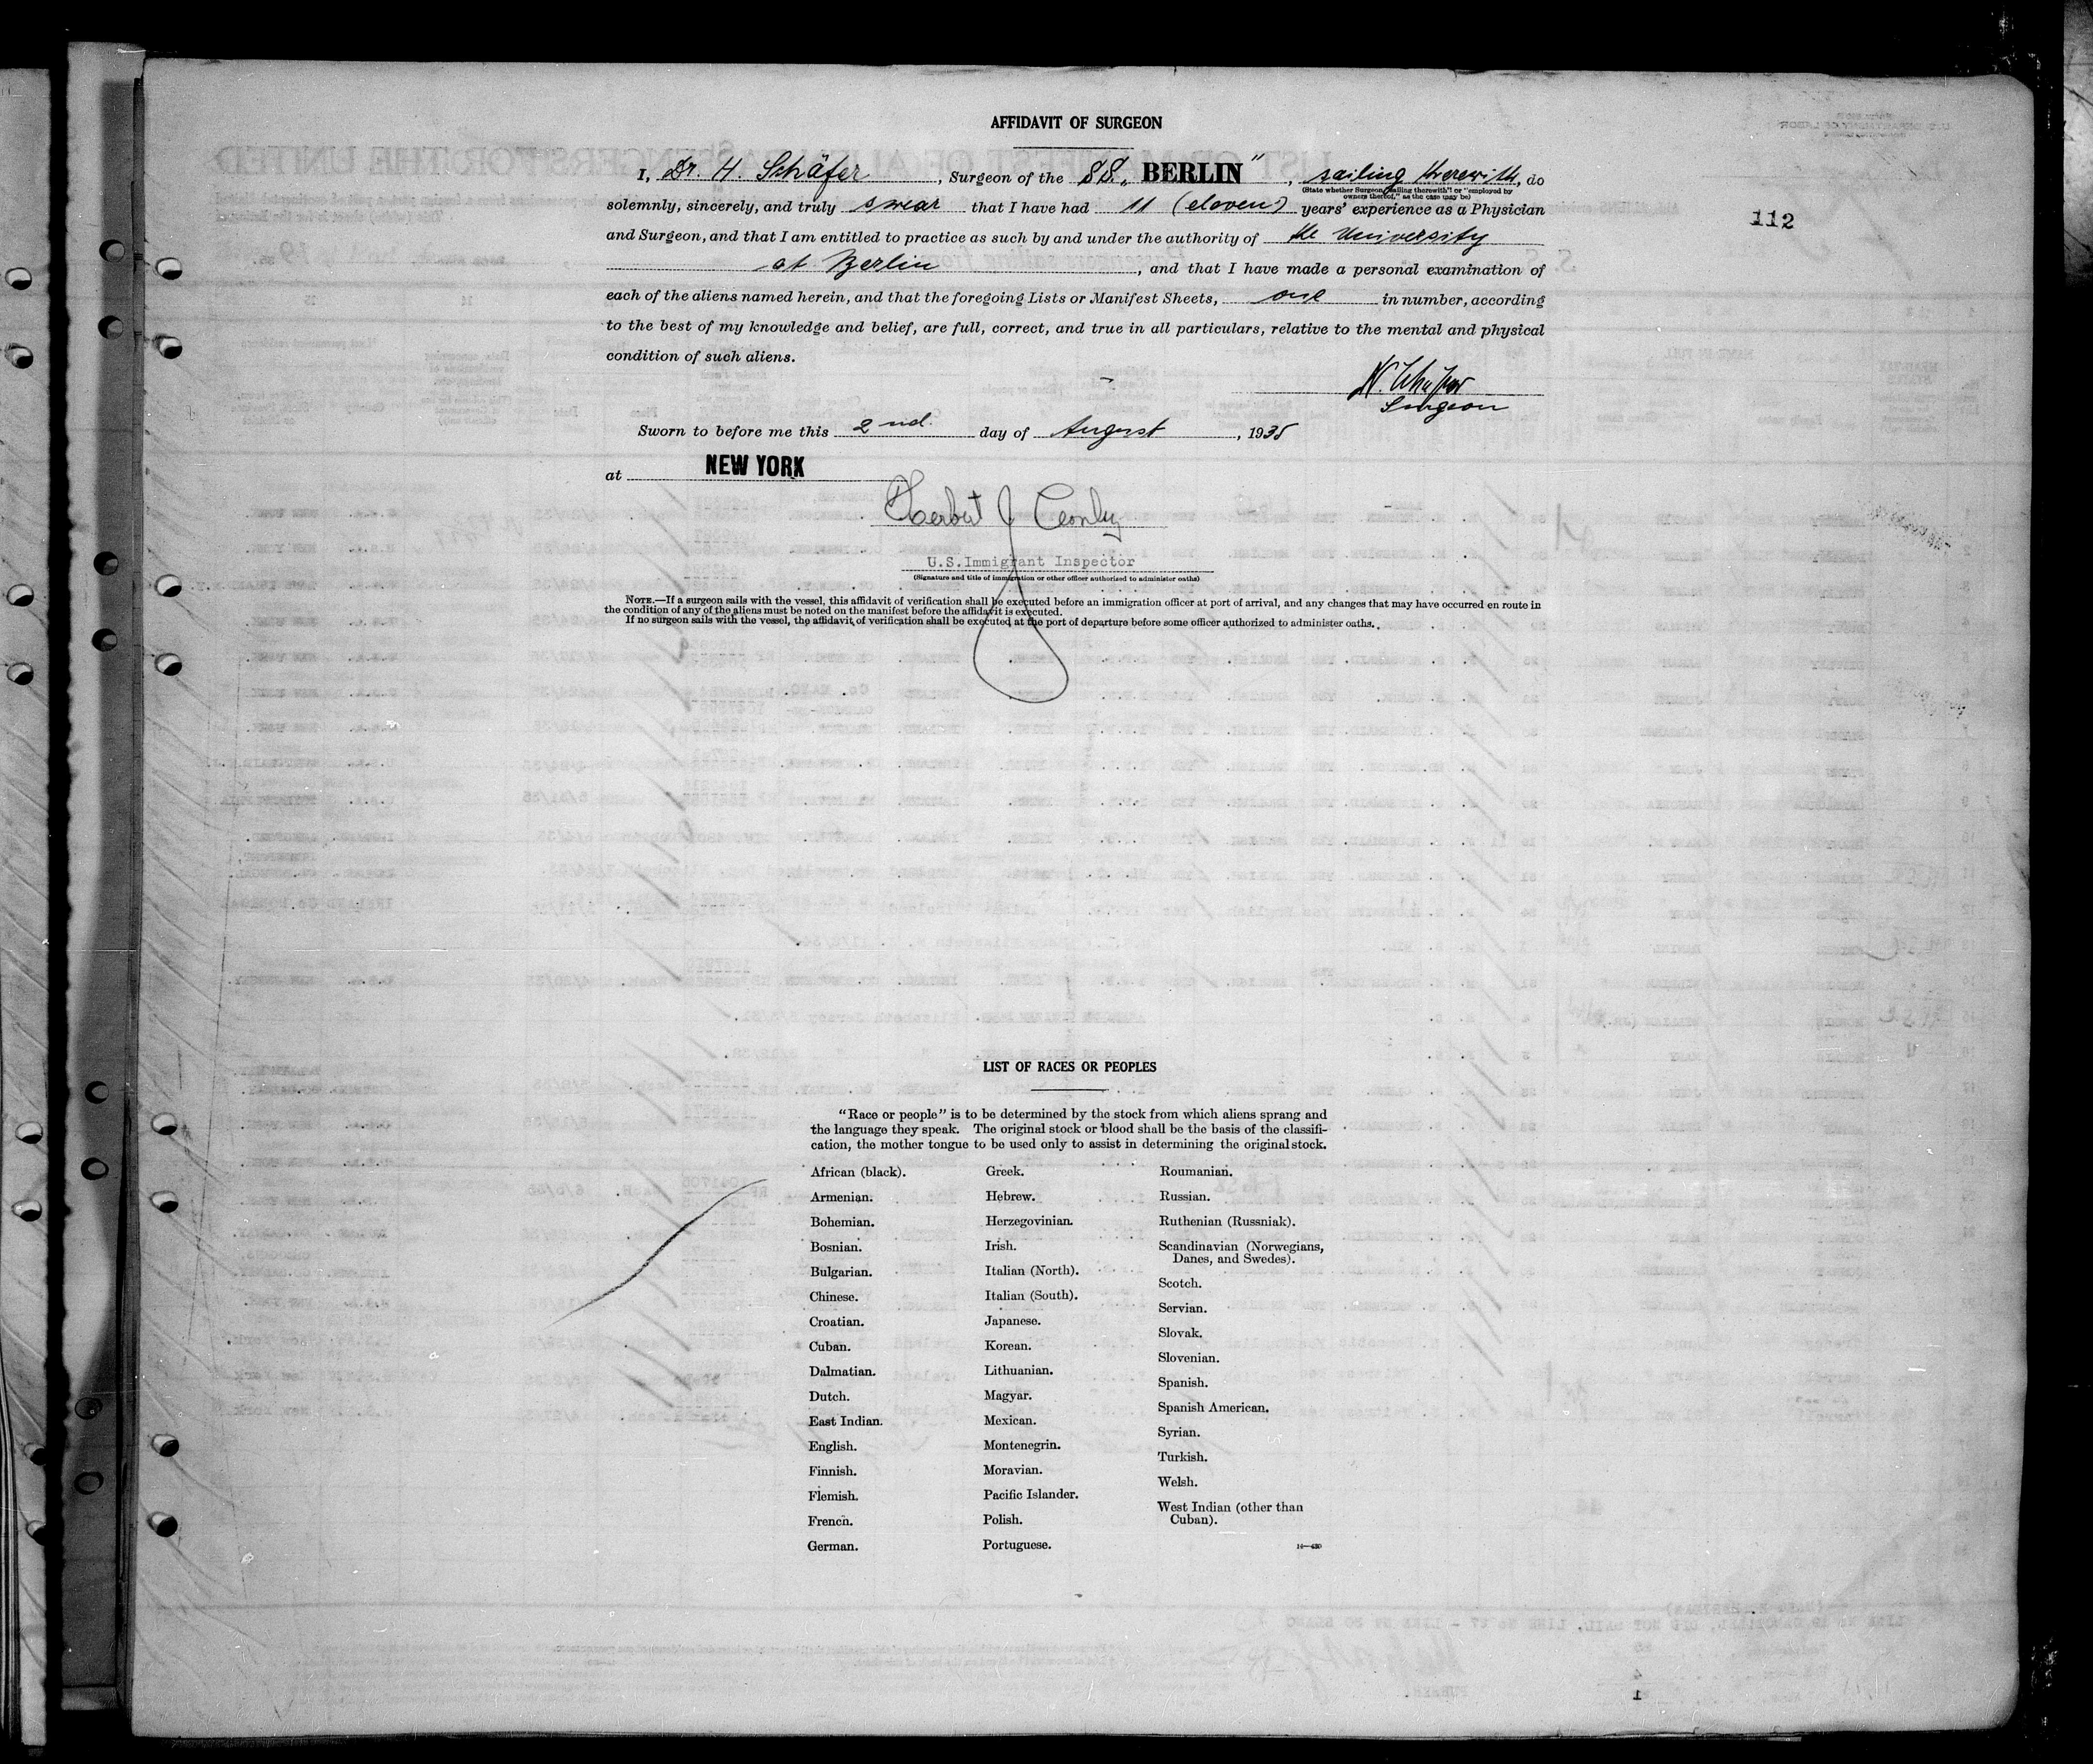 AFFIDAVIT OF SURGEON
I, Dr. H. Schäfer, Surgeon of the SS. „BERLIN", sailing therewith, do
(State whether Surgeon "sailing therewith" or "employed by
owners thereof," as the case may be)
solemnly, sincerely, and truly swear that I have had 11 (eleven) years' experience as a Physician
112
and Surgeon, and that I am entitled to practice as such by and under the authority of the University
at Berlin, and that I have made a personal examination of
each of the aliens named herein, and that the foregoing Lists or Manifest Sheets, one in number, according
to the best of my knowledge and belief, are full, correct, and true in all particulars, relative to the mental and physical
condition of such aliens.
H. Schäfer
Surgeon
Sworn to before me this 2nd. day of August, 1935
at NEW YORK
Herbert J
U.S.Immigrant Inspector
(Signature and title of immigration or other officer authorized to administer oaths)
NOTE.—If a surgeon sails with the vessel, this affidavit of verification shall be executed before an immigration officer at port of arrival, and any changes that may have occurred en route in
the condition of any of the aliens must be noted on the manifest before the affidavit is executed.
If no surgeon sails with the vessel, the affidavit of verification shall be executed at the port of departure before some officer authorized to administer oaths.
LIST OF RACES OR PEOPLES
"Race or people" is to be determined by the stock from which aliens sprang and
the language they speak. The original stock or blood shall be the basis of the classifi-
cation, the mother tongue to be used only to assist in determining the original stock.
African (black).
Armenian.
Bohemian.
Bosnian.
Bulgarian.
Chinese.
Croatian.
Cuban.
Dalmatian.
Dutch.
East Indian.
English.
Finnish.
Flemish.
French.
German.
Greek.
Hebrew.
Herzegovinian.
Irish.
Italian (North).
Italian (South).
Japanese.
Korean.
Lithuanian.
Magyar.
Mexican.
Montenegrin.
Moravian.
Pacific Islander.
Polish.
Portuguese.
Roumanian.
Russian.
Ruthenian (Russniak).
Scandinavian (Norwegians,
Danes, and Swedes).
Scotch.
Servian.
Slovak.
Slovenian.
Spanish.
Spanish American.
Syrian.
Turkish.
Welsh.
West Indian (other than
Cuban).
1